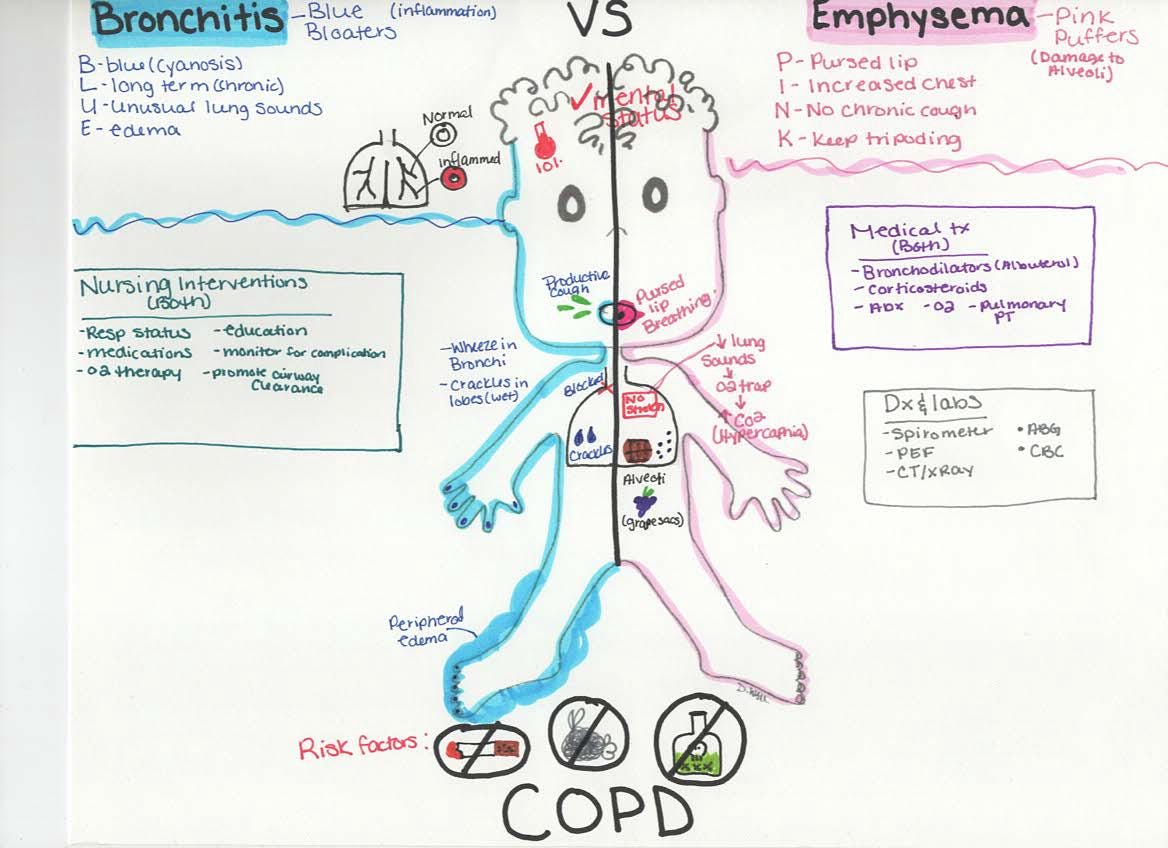 Bronchitis
- Blue (inflammation)
Bloaters
B - blue (cyanosis)
L - long term (chronic)
U - unusual lung sounds
E - edema
VS
Emphysema
- Pink
Puffers
(Damage to
Alveoli)
P - Pursed lip
I - Increased chest
N - No chronic cough
K - Keep tripoding
Normal
Inflammed
✓ mental
status
101.
Nursing Interventions
(Both)
- Resp status
- medications
- O2 therapy
- education
- monitor for complication
- promote airway
Clearance
Productive
Cough
Pursed
lip
Breathing.
- Wheeze in
Bronchi
- Crackles in
lobes (wet)
Blocked
Crackles
No
Stretch
↓ lung
Sounds
↓
O2 trap
↓
↑ CO2
(Hypercapnia)
Alveoli
(grape sacs)
Medical tx
(Both)
- Bronchodilators (Albuterol)
- Corticosteroids
- Abx - O2 - Pulmonary
PT
Dx & labs
- Spirometer
- PEF
- CT/XRAY
• ABG
• CBC
Peripheral
edema
Risk factors:
COPD